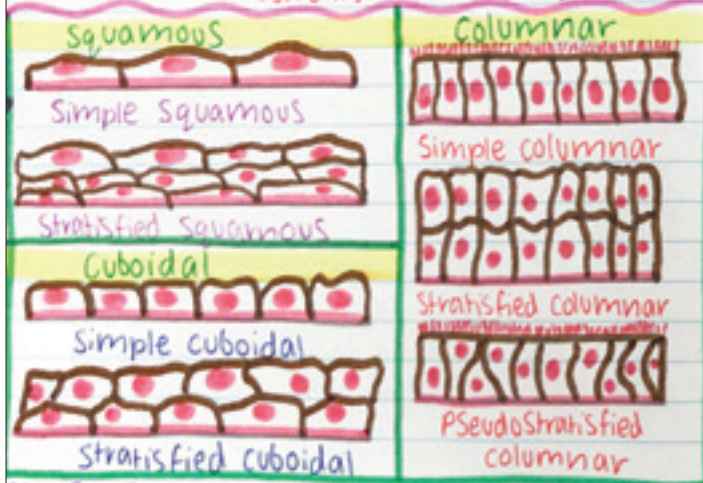 Squamous
Simple Squamous
Stratisfied Squamous
Cuboidal
Simple cuboidal
Stratisfied cuboidal
Columnar
Simple columnar
Stratisfied columnar
Pseudostratisfied
columnar